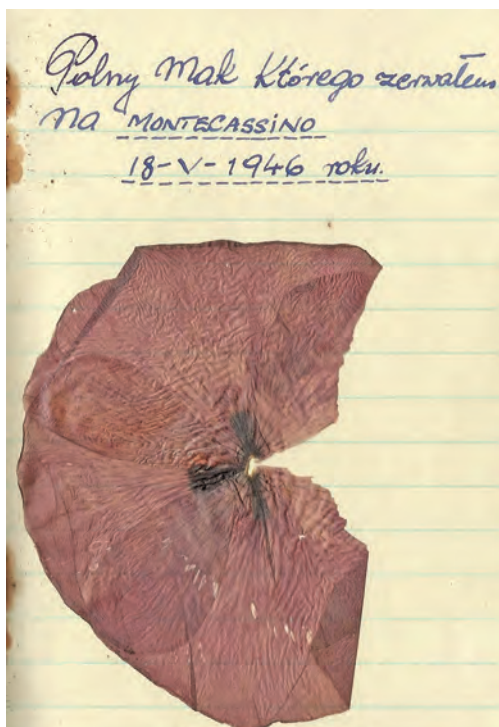 Polny Mak Którego zerwałem
na MONTECASSINO
18-V-1946 roku.